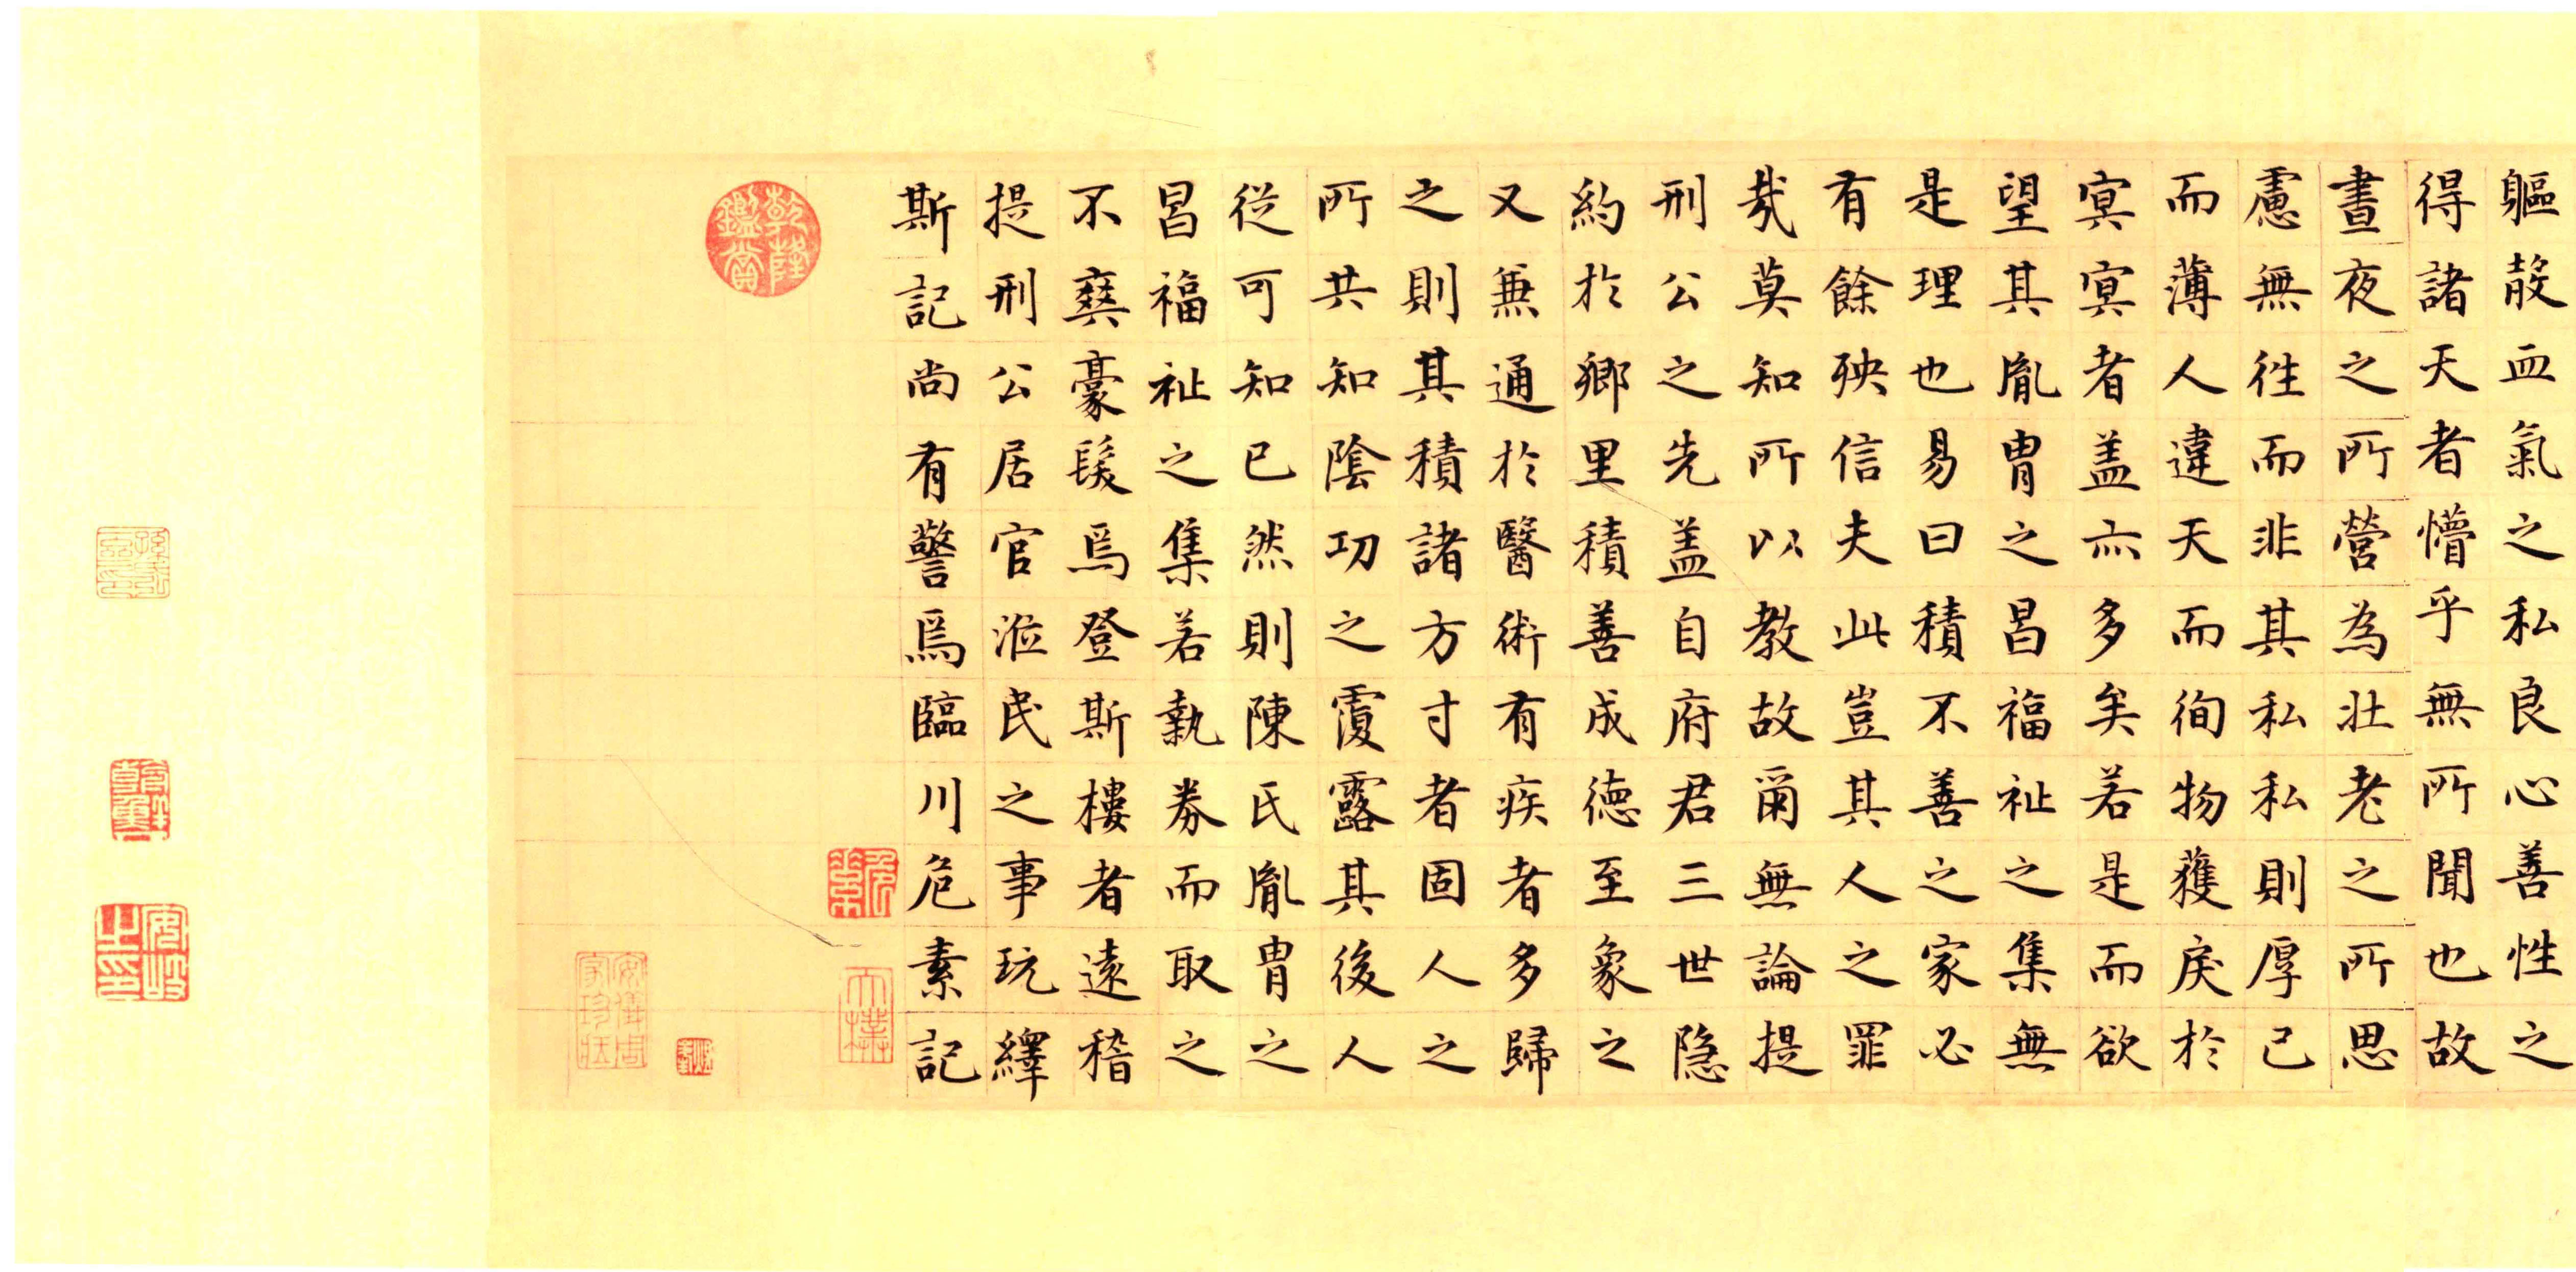 軀殽血氣之私良心善性之
得諸天者懵乎無所聞也故
晝夜之所營為壯老之所思
慮無徃而非其私私則厚己
而薄人違天而徇物獲戾於
㝠㝠者盖亦多矣若是而欲
望其胤胄之昌福祉之集無
是理也易曰積不善之家必
有餘殃信夫此豈其人之罪
㢤莫知所以教故爾無論提
刑公之先盖自府君三世隐
約於鄉里積善成德至象之
又兼通於醫術有疾者多歸
之則其積諸方寸者固人之
所共知陰功之覆露其後人
從可知已然則陳氏胤胄之
昌福祉之集若執券而取之
不爽豪髮焉登斯樓者遠稽
提刑公居官涖民之事玩繹
斯記尚有警焉臨川危素記
乾隆鑑賞
大樸
安儀周家珍藏
安岐之印